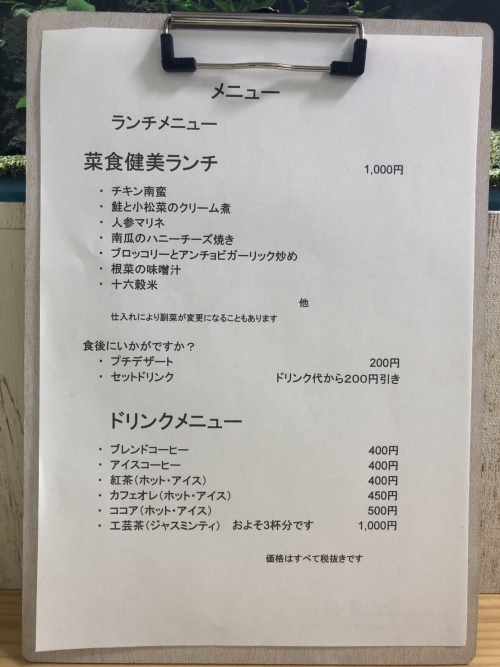 メニュー
ランチメニュー
菜食健美ランチ 1,000円
・ チキン南蛮
・ 鮭と小松菜のクリーム煮
・ 人参マリネ
・ 南瓜のハニーチーズ焼き
・ ブロッコリーとアンチョビガーリック炒め
・ 根菜の味噌汁
・ 十六穀米
他
仕入れにより副菜が変更になることもあります
食後にいかがですか？
・ プチデザート 200円
・ セットドリンク ドリンク代から200円引き
ドリンクメニュー
・ ブレンドコーヒー 400円
・ アイスコーヒー 400円
・ 紅茶（ホット・アイス） 400円
・ カフェオレ（ホット・アイス） 450円
・ ココア（ホット・アイス） 500円
・ 工芸茶（ジャスミンティ） およそ3杯分です 1,000円
価格はすべて税抜きです